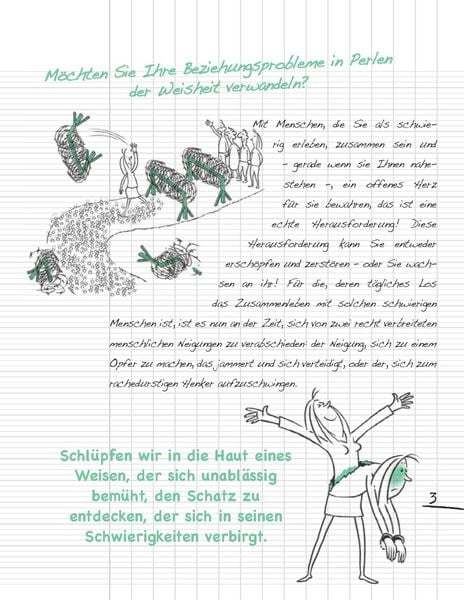 Möchten Sie Ihre Beziehungsprobleme in Perlen
der Weisheit verwandeln?
Mit Menschen, die Sie als schwie-
rig erleben, zusammen sein und
- gerade wenn sie Ihnen nahe-
stehen -, ein offenes Herz
für sie bewahren, das ist eine
echte Herausforderung! Diese
Herausforderung kann Sie entweder
erschöpfen und zerstören - oder Sie wach-
sen an ihr! Für die, deren tägliches Los
das Zusammenleben mit solchen schwierigen
Menschen ist, ist es nun an der Zeit, sich von zwei recht verbreiteten
menschlichen Neigungen zu verabschieden: der Neigung, sich zu einem
Opfer zu machen, das jammert und sich verteidigt, oder der, sich zum
rachedurstigen Henker aufzuschwingen.
Schlüpfen wir in die Haut eines
Weisen, der sich unablässig
bemüht, den Schatz zu
entdecken, der sich in seinen
Schwierigkeiten verbirgt.
3